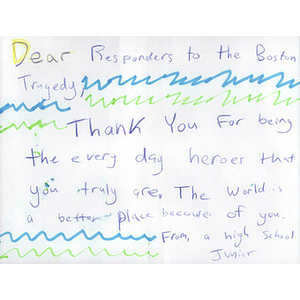 Dear Responders to the Boston
Tragedy,
Thank You For being
the every day heroes that
you truly are. The World is
a better place because of you.
From, a high School
Junior